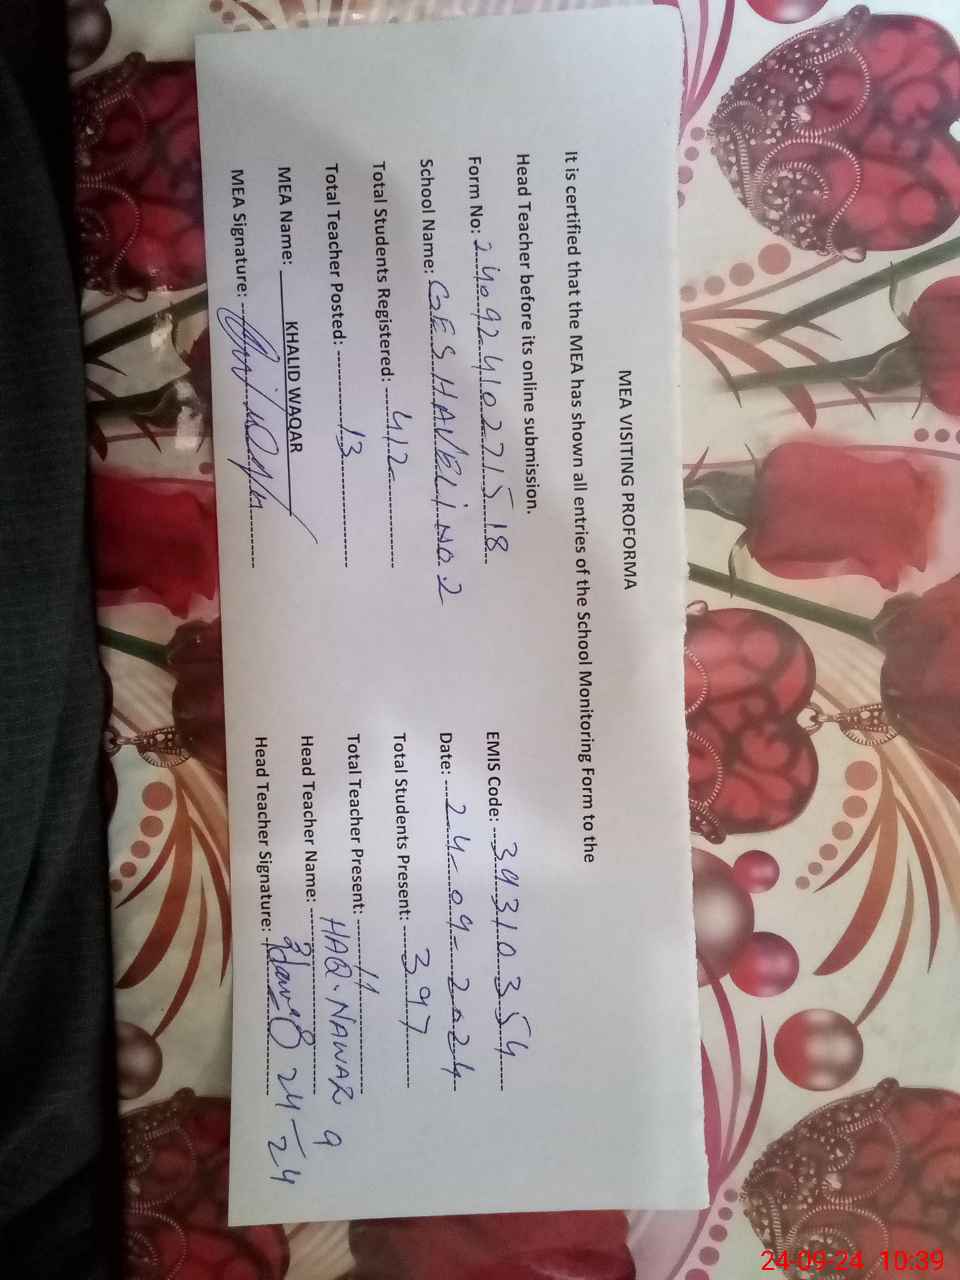 MEA VISITING PROFORMA
It is certified that the MEA has shown all entries of the School Monitoring Form to the
Head Teacher before its online submission.
Form No: 24092410271518 EMIS Code: 39310354
School Name: GES HAVELI NO.2 Date: 24-09-2024
Total Students Registered: 412 Total Students Present: 397
Total Teacher Posted: 13 Total Teacher Present: 11
MEA Name: KHALID WAQAR Head Teacher Name: HAQ.NAWAZ
MEA Signature: Head Teacher Signature:
24-09-24 10:39